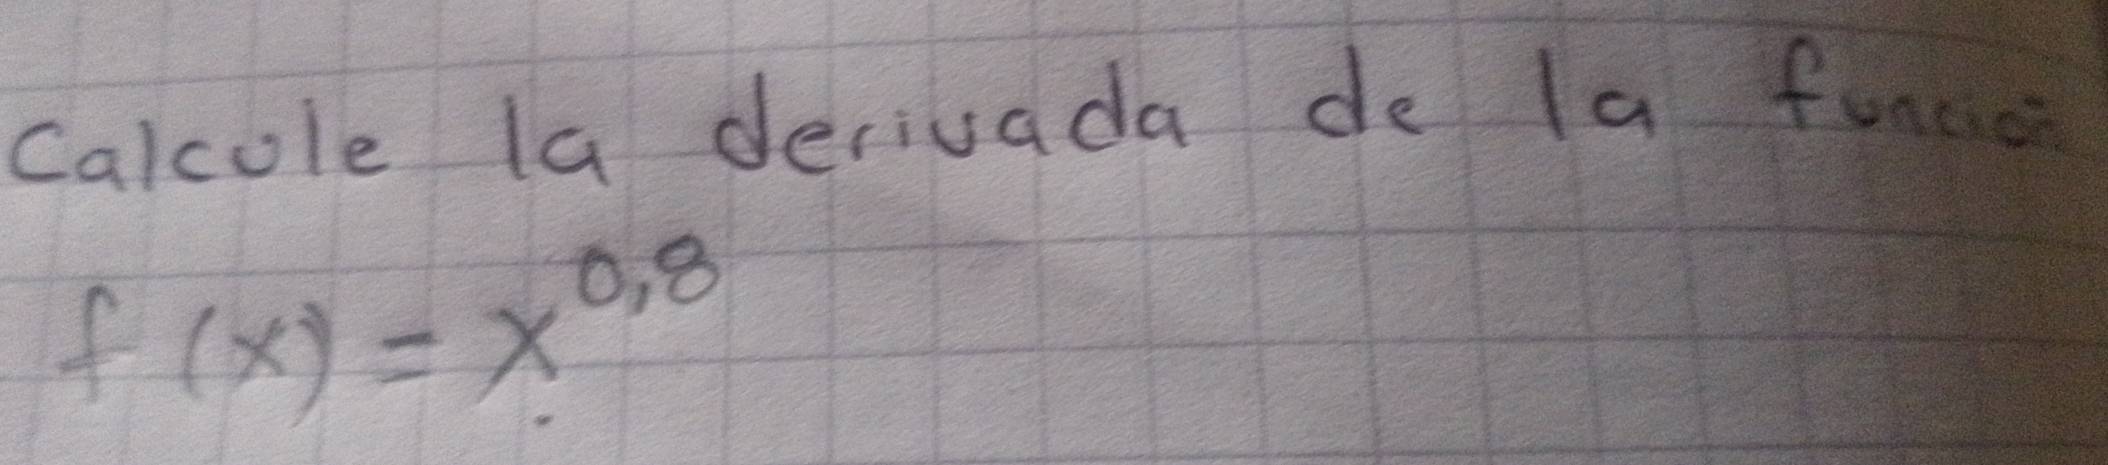 Calcule la derivada de la función
f(x) = x^0,8